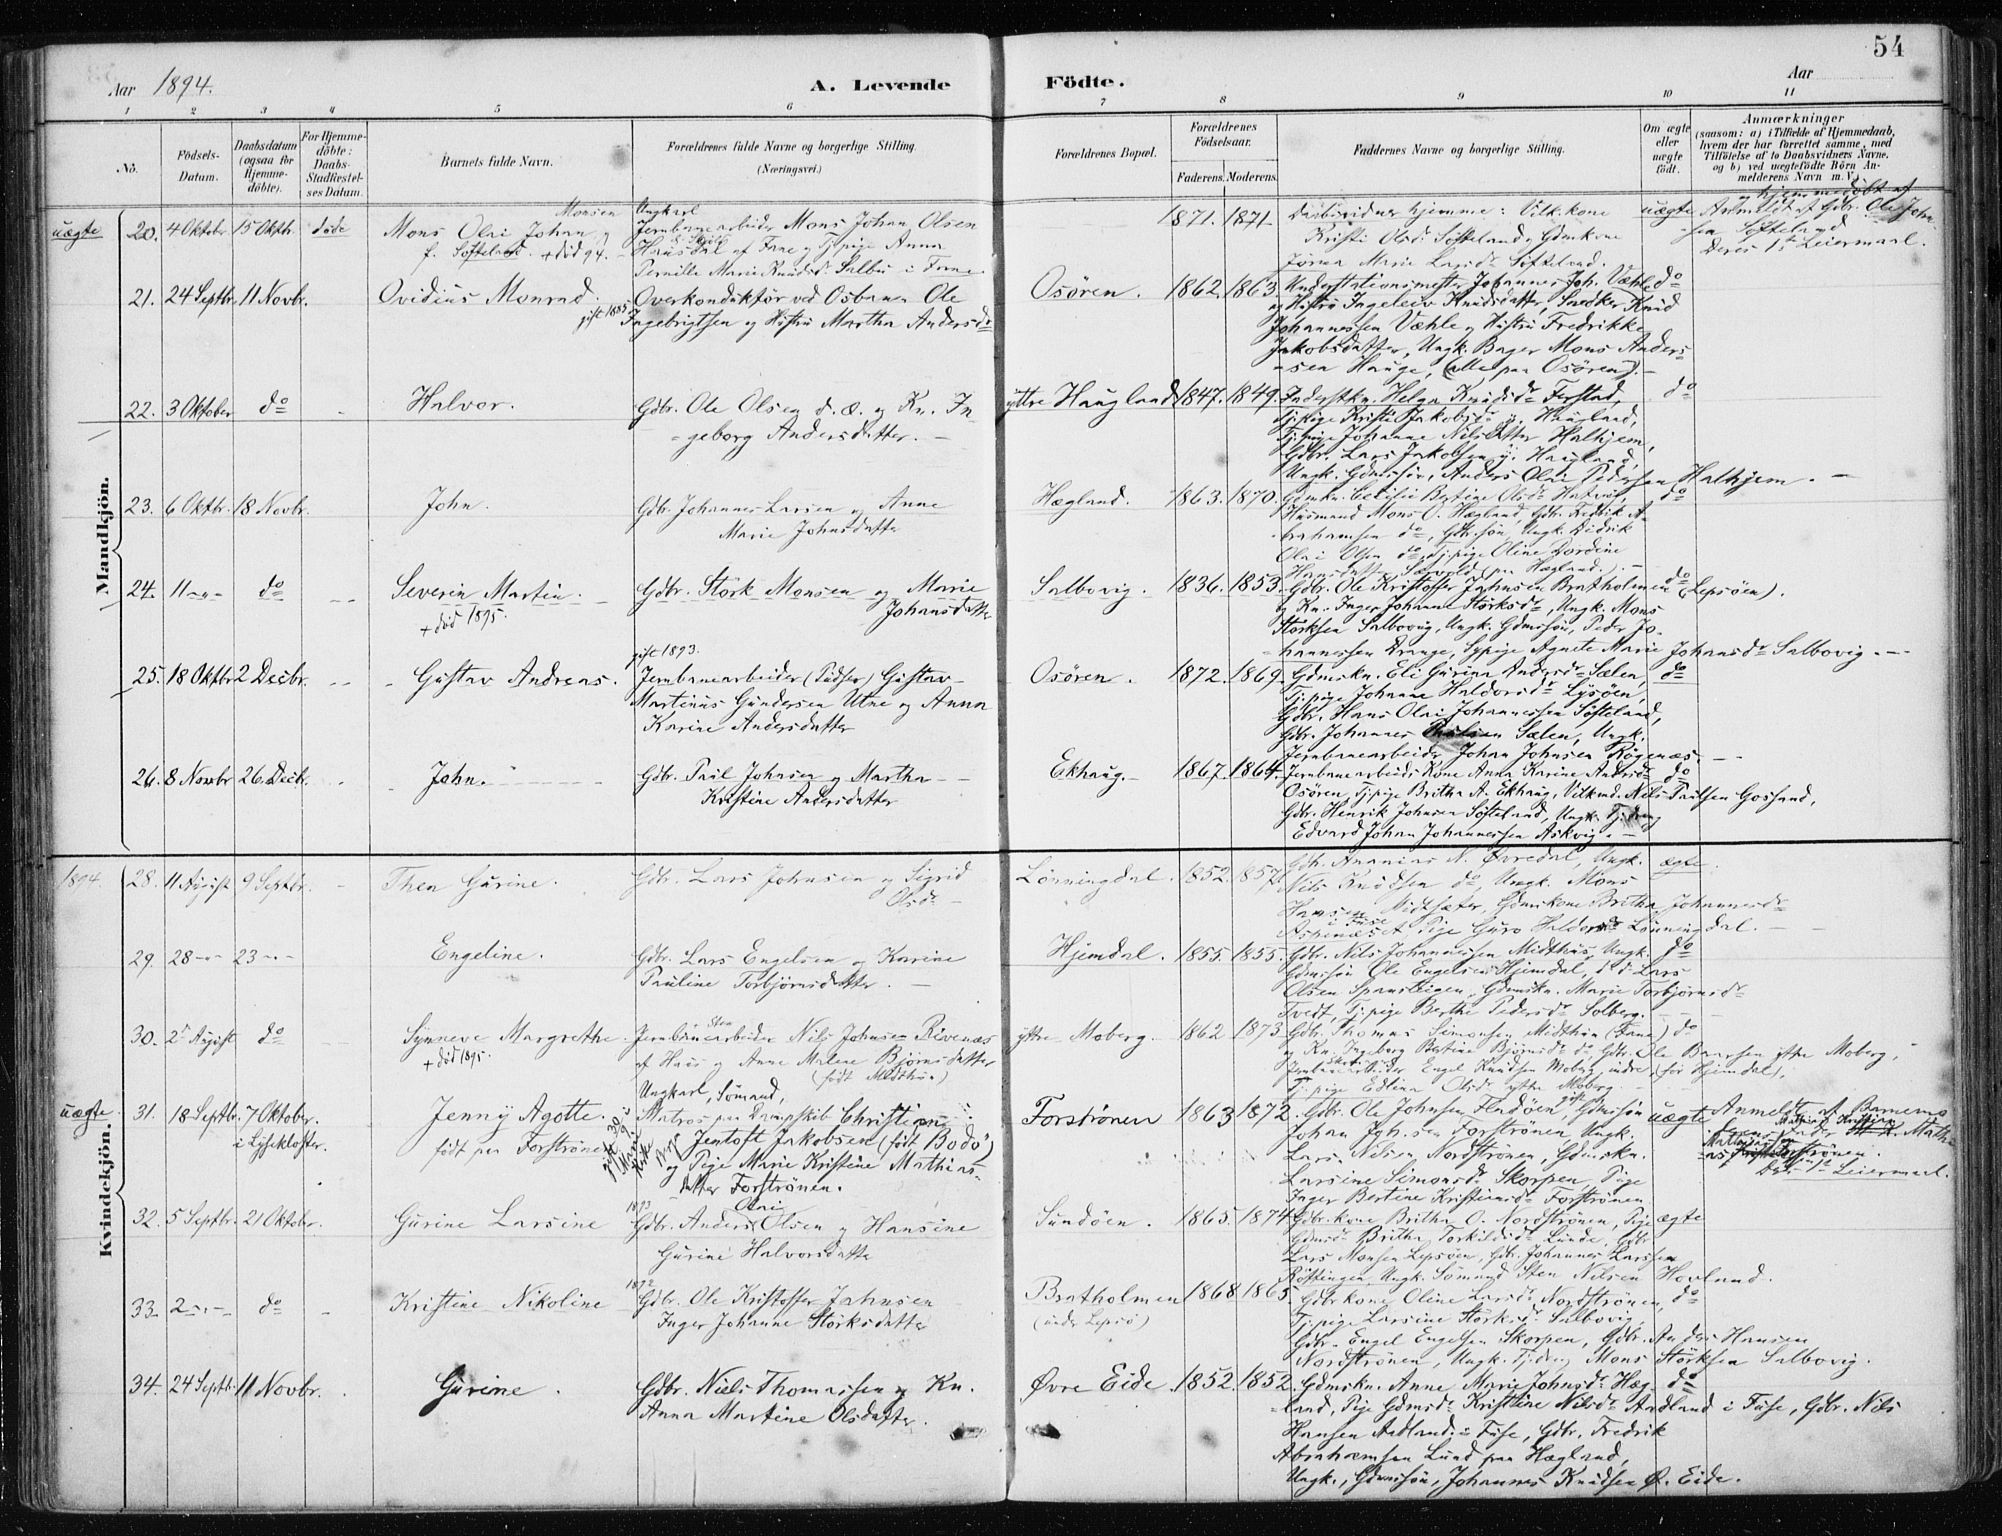 54
Aar 1894. A. Levende Födte. Aar
1 2 3 4 5 6 7 8 9 10 11
No. Födsels-Datum. Daabsdatum (ogsaa for Hjemme-döbte). For Hjemme-döbte: Daabs-Stadfæstel-ses Datum. Barnets fulde Navn. Forældrenes fulde Navne og borgerlige Stilling. (Næringsvei.) Forældrenes Bopæl. Forældrenes Födselsaar. Faderens. Moderens. Faddernes Navne og borgerlige Stilling. Om ægte eller uægte födt. Anmærkninger (saasom: a) i Tilfælde af Hjemmedaab, hvem der har forrettet samme, med Tilföielse af to Daabsvidners Navne, og b) ved uægtefödte Börn An-melderens Navn m. V.)
Mandkjön.
uægte 20. 4 Oktober 15 Oktbr. döde Mons Olai Johan
f. Söfteland. + död 94.
Ungkarl
Jernbanearbeider Mons Johan Olsen
af Fane og Tj.pige Anna
Pernille Marie Knudsd. Salbu i Fane
1871. 1871. Daabsvidner hjemme: Vilk. kone
Kristi Olsd. Söfteland, Gdmkone
Marie Larsdr Söfteland.
uægte hjemmedöbt af
Anmeldt af Gdbr. Ole John-
sen Söfteland
Deres 1ste Leiermaal.
21. 24 Septbr. 11 Novbr. Ovidius Monrad.
gift 1885
Overkonduktör ved Osbanen Ole
Ingebrigtsen og Hustru Martha Andersdr
Osören. 1862. 1863. Understationsmester Johannes Joh. Væhle
og Hustru Ingeleiv Knudsdatter, Snedker Knud
Johannessen Væhle og Hustru Fredrikke
Jakobsdatter, Ungk. Bager Mons Anders-
sen Hauge, (alle paa Osören).
do
22. 3 Oktober do Halvor. Gdbr. Ole Olsen d. æ. og Kn. In-
geborg Andersdatter.
yttre Haugland 1847. 1849. Inderstkn. Helga Knudsdr Ferstad,
Tj.pige Kristi Jakobsdr y. Haugland,
Tj.pige Johanne Nilsdatter Halhjem,
Gdbr. Lars Jakobsen y. Haugland,
Ungk. Gdmssön, Anders Olai Pedersen Halhjem.
do
23. 6 Oktbr. 18 Novbr. John. Gdbr. Johannes Larsen og Anne
Marie Johnsdatter
Hægland. 1863. 1870. Gdmkn. Cecilie Bertine Olsdr Hatvik,
Husmand Mons O. Hægland, Gdbr. Fredrik A-
brahamsen do, Gdbr.sön, Ungk. Didrik
Olai Olsen do, Tj.pige Oline Dordine
Hansdatter Særvold (paa Hægland).
do
24. 11 -"- do Severin Martin.
+ död 1895.
Gdbr. Störk Monsen og Marie
Johansdatter
Salbovig. 1836. 1853. Gdbr. Ole Kristoffer Jahnsen Bratholmen (Lepsöen).
og Kn. Inger Johanne Störksdr, Ungk. Mons
Störksen Salbovig, Ungk. Gdmssön, Peder Jo-
hannessen Drange, Sypige Agnete Marie Johansdr Salbovig.
do
25. 18 Oktbr 2 Decbr. Gustav Andreas.
gift 1893.
Jernbanearbeider (Pudser) Gustav
Martinus Gundersen Utne og Anna
Karine Andersdatter
Osören. 1872. 1869. Gdmskn. Eli Gurina Andersdr Sælen,
Tj.pige Johanne Haldorsdr Lysöen,
Gdbr. Hans Olai Johannessen Söfteland,
Gdbr. Johannes Sælen, Ungk.
Jernbanearbeider Johan Johnsen Rögenæs.
do
26. 8 Novbr 26. Decbr. John. Gdbr. Paul Johnsen og Martha
Kristine Andersdatter
Ekhaug. 1867. 1864. Jernbanearbeids Kone Anna Karine Andersdr
Osören, Tj.pige Britha A. Ekhaug, Vilkmd. Nils Paulsen Gossand,
Gdbr. Henrik Johnsen Söfteland, Ungk. Tj.dreng
Edvard Johan Johannessen Askvig.
do
Kvindekjön.
1894. 28. 11 August 9 Septbr. Thea Gurine. Gdbr. Lars Johnsen og Sigrid
Olsdr
Lönningdal. 1852. 1857. Gdbr. Ananias N. Övredal, Ungk.
Nils Knudsen do, Ungk. Mons
Hansen Midtsæter, Gdmskone Britha Johannesdr
i Fuse
Pige Guro Haldorsdr Lönningdal.
ægte.
29. 28 -"- 23 -"- Engeline. Gdbr. Lars Engelsen og Karine
Pauline Torbjörnsdatter.
Hjemdal. 1855. 1855. Gdbr. Nils Johannessen Midthus, Ungk.
Gdmssön Ole Engelsen Hjemdal, do do Lars
Olsen Spansteigen, Gdmskn. Marie Torbjörnsdr
Tvedt, Tj.pige Berthe Pedersdr Solberg.
do
30. 2 August do Synneve Margrethe.
+ död 1895.
Jernbanearbeider Nils Johnsen Rivenæs
af Haus og Anne Malene Björnsdatter
(födt Midthun)
yttre Moberg. 1862 1873 Gdbr. Thomas Simonsen Midthun (Fane)
og Kn. Ingeborg Bertine Björnsdr do, Gdbr. Ole Baarsen yttre Moberg,
Jernbanearbeider Engel Knudsen Moberg indre (för Hjemdal),
Tj.pige Edlina Olsdr yttre Moberg.
do
uægte. 31. 18 Septbr. 7 Oktober.
i Lysekloster.
Jenny Agotte.
födt paa Forströnen
Ungkarl, Sömand,
Matros paa Dampskib Christian
Jentoft Jakobsen (födt Bodö)
og Pige Marie Kristine Mathias-
datter Forströnen.
Forströnen 1863 1872. Gdbr. Ole Johnsen Flendöen, Gdmssön
Johan Joh.sen Forströnen, Ungk.
Lars Nilsen Nordströnen, Gdmskn.
Larsine Simonsdr Skorpen, Pige
Inger Bertine Kristiansdr Forströnen.
uægte Anmeldt af Barnets
Forströnen.
Leiermaal.
32. 5 Septbr. 21 Oktober. Gurine Larsine
1893 Olai
Gdbr. Anders Olsen og Hansine
Gurine Halvorsdatter
Sundöen. 1865. 1874 Gdbr.kone Britha O. Nordströnen, Pige
Gdmsdr Britha Torkildsdr Lunde, Gdbr.
Lars Monsen Lepsöen, Gdbr. Johannes Larssen
Röttingen, Ungk. Sömand Sten Nilsen Hovland.
ægte
33. 2 -"- do Kristine Nikoline
1892
Gdbr. Ole Kristoffer Jahnsen
Inger Johanne Störksdatter
Bratholmen
(under Lepsö)
1868 1865 Gdbr.kone Oline Larsdr Nordströnen,
Tj.pige Larsine Störksdr Salbovig,
Gdbr. Engel Engelsen Skorpen, Gdbr. Anders Hansen
Nordströnen, Ungk. Tj.dreng Mons Störksen Salbovig.
do
34. 24 Septbr. 11 Novbr. Gurine. Gdbr. Niels Thomassen og Kn.
Anna Martine Olsdatter.
Övre Eide. 1852. 1852. Gdmskn. Anne Marie Johnsdr Hæg-
land, Pige Gdmsdr Kristine Nilsdr Aadland i Fuse, Gdbr. Nils
Hansen Aadland i Fuse, Gdbr. Fredrik
Abrahamsen Lund paa Hægland,
Ungk., Gdmssön, Johannes Knudsen Ö. Eide.
do